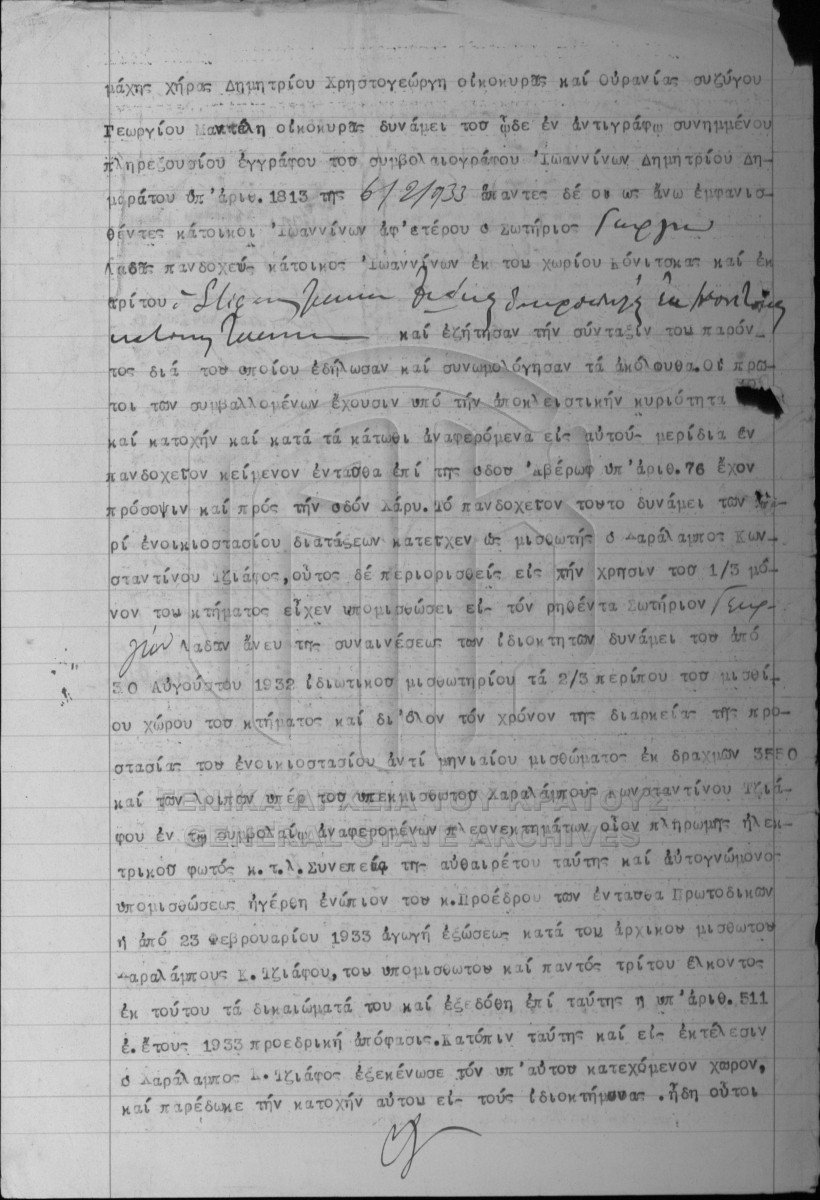 μάχης χήρας Δημητρίου Χρηστογεώργη οἰκοκυρᾶς καί Οὐρανίας συζύγου
Γεωργίου Μαντέλη οἰκοκυρᾶς δυνάμει τοῦ ᾧδε ἐν ἀντιγράφῳ συνημμένου
πληρεξουσίου ἐγγράφου τοῦ συμβολαιογράφου Ἰωαννίνων Δημητρίου Δη-
μαράτου ὑπ'ἀριθ.1813 τῆς 6/2/933 ἅπαντες δέ οἱ ὡς ἄνω ἐμφανισ-
θέντες κάτοικοι Ἰωαννίνων ἀφ'ετέρου ὁ Σωτήριος Γεωργίου
Λαδᾶς πανδοχεύς κάτοικος Ἰωαννίνων ἐκ τοῦ χωρίου Κόνιτσκας καί ἐκ
τρίτου ὁ
καί ἐζήτησαν τήν σύνταξιν τοῦ παρόν_
τος διά τοῦ ὁποίου ἐδήλωσαν καί συνωμολόγησαν τά ἀκόλουθα.Οἱ πρω-
τοι τῶν συμβαλλομένων ἔχουσιν ὑπό τήν ἀποκλειστικήν κυριότητα
καί κατοχήν καί κατά τά κάτωθι ἀναφερόμενα εἰς αὐτούς μερίδια ἕν
πανδοχεῖον κείμενον ἐνταῦθα ἐπί τῆς ὁδοῦ Ἀβέρωφ ὑπ'ἀριθ.76 ἔχον
πρόσοψιν καί πρός τήν ὁδόν Λάρυ.Τό πανδοχεῖον τοῦτο δυνάμει τῶν πε-
ρί ἐνοικιοστασίου διατάξεων κατεῖχεν ὡς μισθωτής ὁ Χαράλαμπος Κων-
σταντίνου Τζιάφος,οὗτος δέ περιορισθείς εἰς τήν χρῆσιν τοῦ 1/3 μό-
νον τοῦ κτήματος εἶχεν ὑπομισθώσει εἰς τόν ρηθέντα Σωτήριον Γεωρ-
γίου Λαδᾶν ἄνευ τῆς συναινέσεως τῶν ἰδιοκτητῶν δυνάμει τοῦ ἀπό
30 Αὐγούστου 1932 ἰδιωτικοῦ μισθωτηρίου τά 2/3 περίπου τοῦ μισθί-
ου χώρου τοῦ κτήματος καί δι'ὅλον τόν χρόνον τῆς διαρκείας τῆς προ-
στασίας τοῦ ἐνοικιοστασίου ἀντί μηνιαίου μισθώματος ἐκ δραχμῶν 3550
καί τῶν λοιπῶν ὑπέρ τοῦ ὑπεκμισθωτοῦ Χαραλάμπους Κωνσταντίνου Τζιά-
φου ἐν τῷ συμβολαίῳ ἀναφερομένων πλεονεκτημάτων οἷον πληρωμῆς ἠλεκ-
τρικοῦ φωτός κ.τ.λ.Συνεπείᾳ τῆς αὐθαιρέτου ταύτης καί αὐτογνώμονος
ὑπομισθώσεως ἠγέρθη ἐνώπιον τοῦ κ.Προέδρου τῶν ἐνταῦθα Πρωτοδικῶν
ἡ ἀπό 23 Φεβρουαρίου 1933 ἀγωγή ἐξώσεως κατά τοῦ ἀρχικοῦ μισθωτοῦ
Χαραλάμπους Κ.Τζιάφου,τοῦ ὑπομισθωτοῦ καί παντός τρίτου ἕλκοντος
ἐκ τούτου τά δικαιώματά του καί ἐξεδόθη ἐπί ταύτης ἡ ὑπ'ἀριθ.511
ἐ.ἔτους 1933 προεδρική ἀπόφασις.Κατόπιν ταύτης καί εἰς ἐκτέλεσιν
ὁ Χαράλαμπος Κ.Τζιάφος ἐξεκένωσε τόν ὑπ'αὐτοῦ κατεχόμενον χῶρον,
καί παρέδωκε τήν κατοχήν αὐτοῦ εἰς τούς ἰδιοκτήμονας .ἤδη οὗτοι
ΓΕΝΙΚΑ ΑΡΧΕΙΑ ΤΟΥ ΚΡΑΤΟΥΣ
GENERAL STATE ARCHIVES